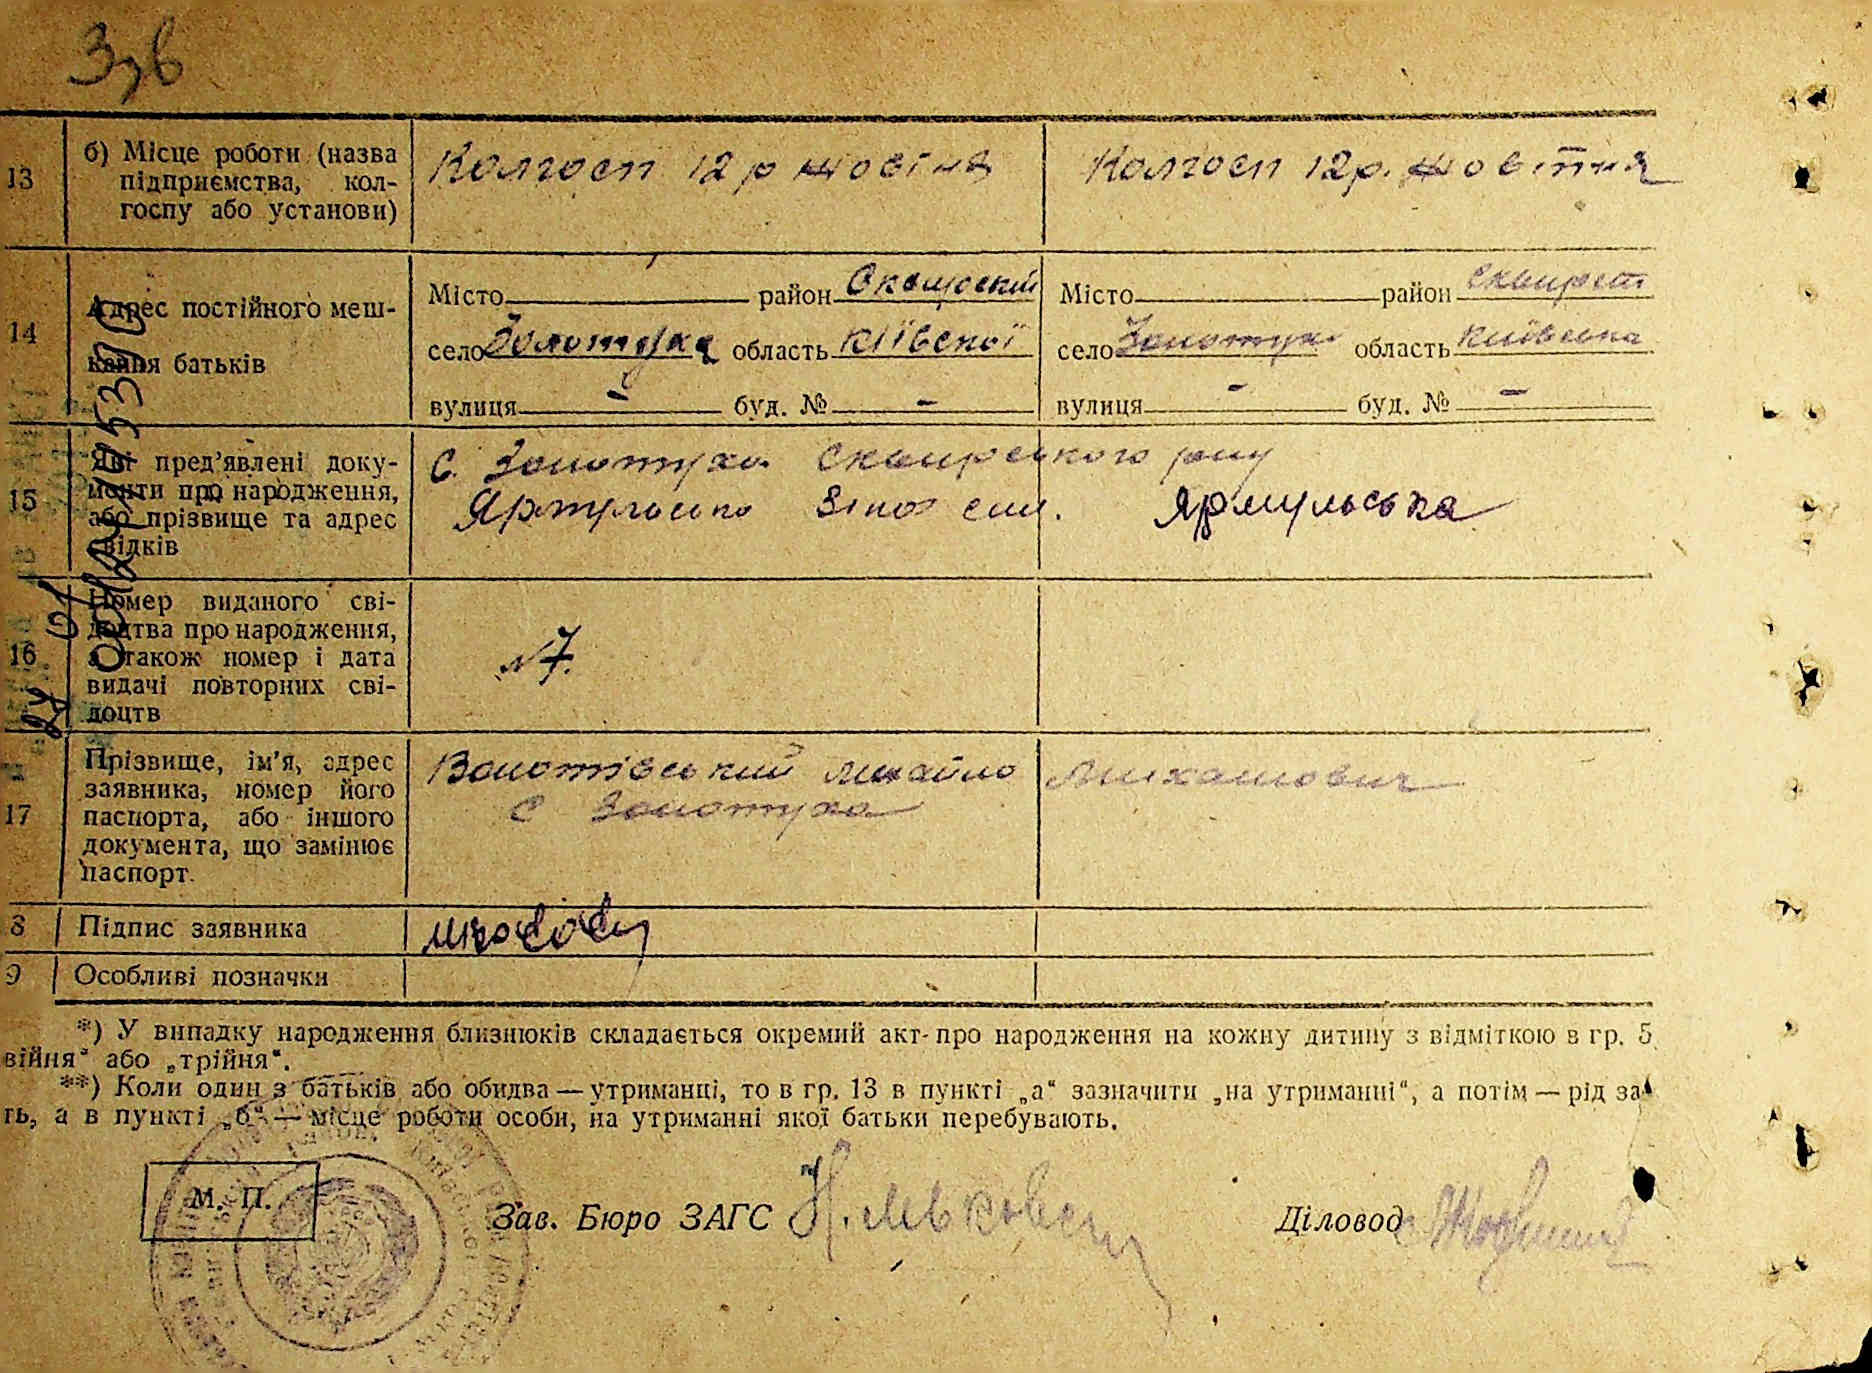 Ззв
13 б) Місце роботи (назва підприємства, кол-
госпу або установи)
Колгосп 12 р Жовтня
Колгосп 12 р. Жовтня
14 Адрес постійного меш-
кання батьків
Місто район Сквирський
село Золотуха область Київської
вулиця - буд. № -
Місто район Сквирськ
село Золотуха область Київська
вулиця - буд. № -
15 Які пред'явлені доку-
менти про народження,
або прізвище та адрес
свідків
с. Золотуха Сквирського р-ну
Ярмульська
16 Номер виданого сві-
доцтва про народження,
а також номер і дата
видачі повторних сві-
доцтв
№ 7.
17 Прізвище, ім'я, адрес
заявника, номер його
паспорта, або іншого
документа, що замінює
паспорт.
Михайло Михайлович
с Золотуха
8 Підпис заявника
9 Особливі позначки
*) У випадку народження близнюків складається окремий акт про народження на кожну дитину з відміткою в гр. 5
війня" або „трійня".
**) Коли один з батьків або обидва — утриманці, то в гр. 13 в пункті „а" зазначити „на утриманні", а потім — рід за-
ть, а в пункті „б" — місце роботи особи, на утриманні якої батьки перебувають.
М. П.
Зав. Бюро ЗАГС
Діловод